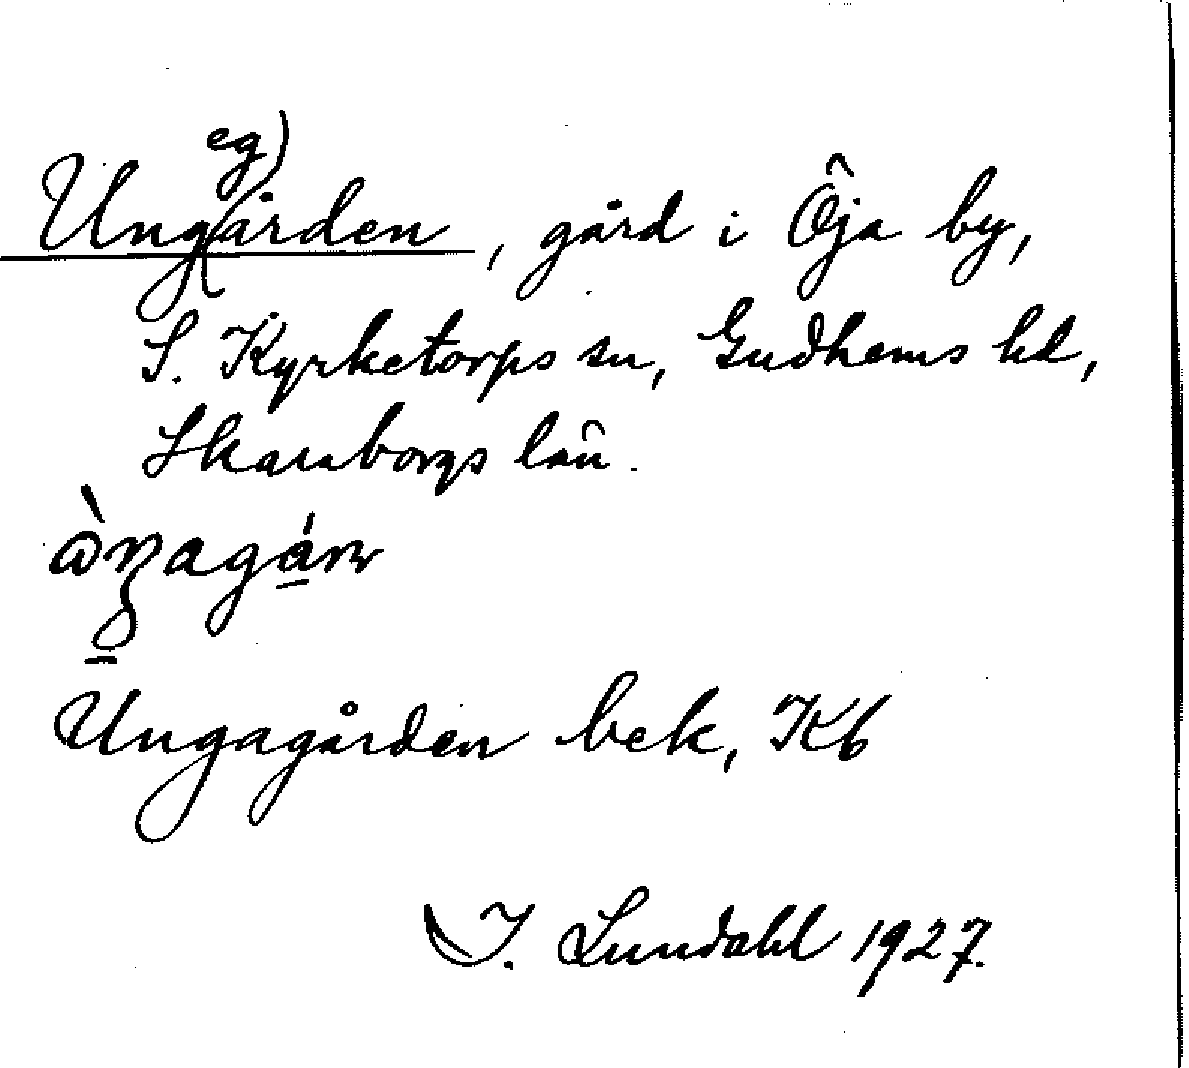 Ungegården, gård i Öja by,
S. Kyrketorps sn, Gudhems hd,
Skaraborgs län.
Ungagården bek, Kb
I. Lundahl 1927.